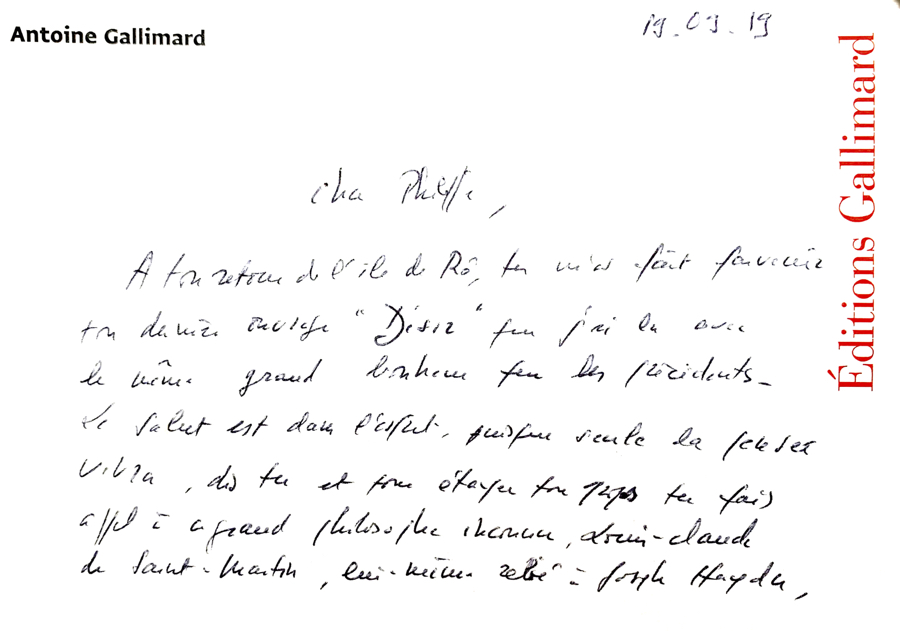 Antoine Gallimard
19.09.19
Éditions Gallimard
Cher Philippe,
A ton retour de l'île de Ré, tu m'as fait parvenir
ton dernier ouvrage "Désir" que j'ai lu avec
le même grand bonheur que les précédents_
Le salut est dans l'esprit, puisque seule la pensée
vibra, dis tu et pour étayer ton propos tu fais
appel à ce grand philosophe inconnu, Louis-Claude
de Saint-Martin, lui-même relié à Joseph Haydn,